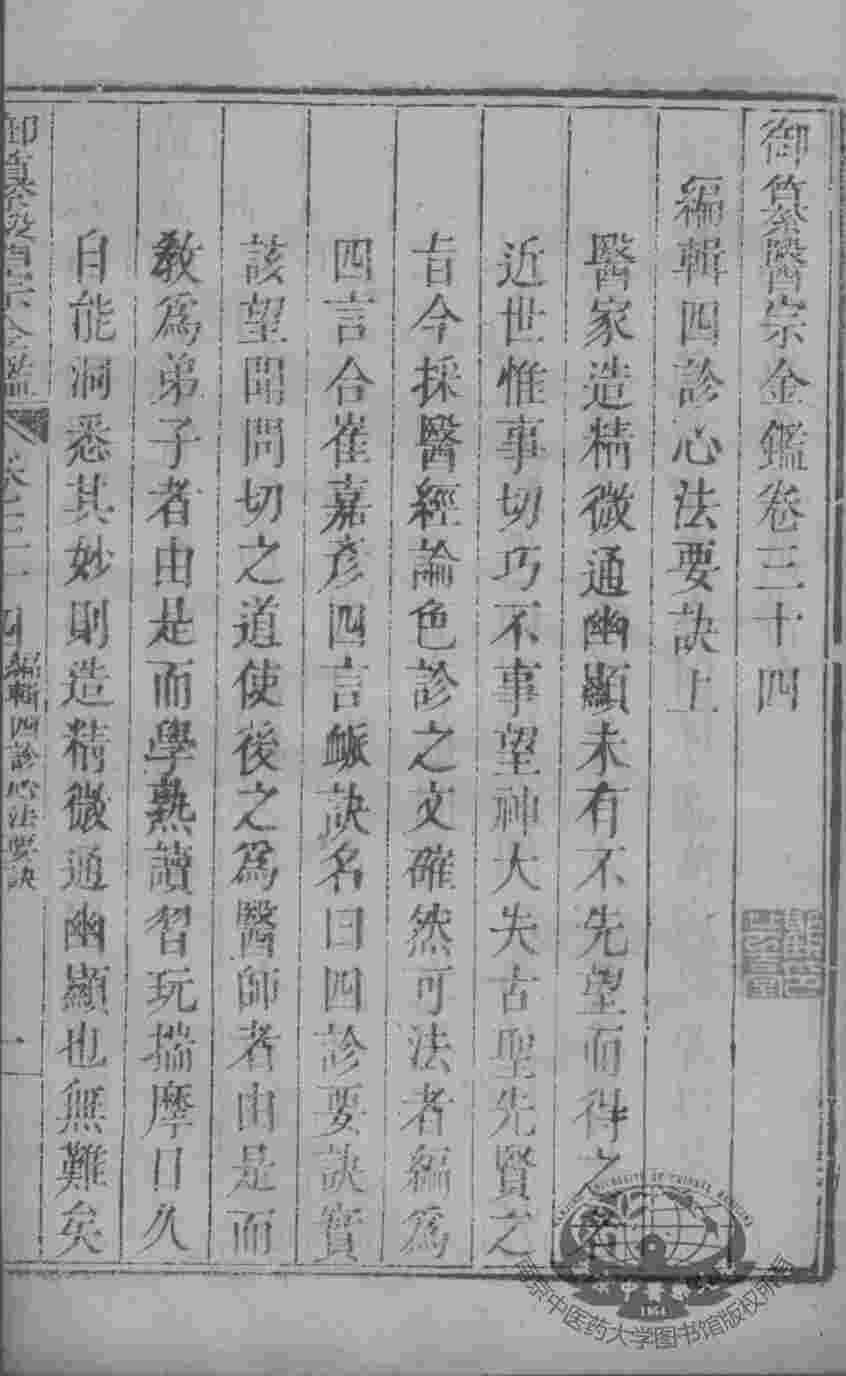 御纂醫宗金鑑卷三十四
編輯四診心法要訣上
醫家造精微通幽顯未有不先望而得之者
近世惟事切巧不事望神大失古聖先賢之
旨今採醫經論色診之文確然可法者編爲
四言合崔嘉彥四言脈訣名曰四診要訣實
該望聞問切之道使後之爲醫師者由是而
教爲弟子者由是而學熟讀習玩揣摩日久
自能洞悉其妙則造精微通幽顯也無難矣
御纂醫宗金鑑 卷三十四 編輯四診心法要訣 一
南京中医药大学图书馆版权所有
1954